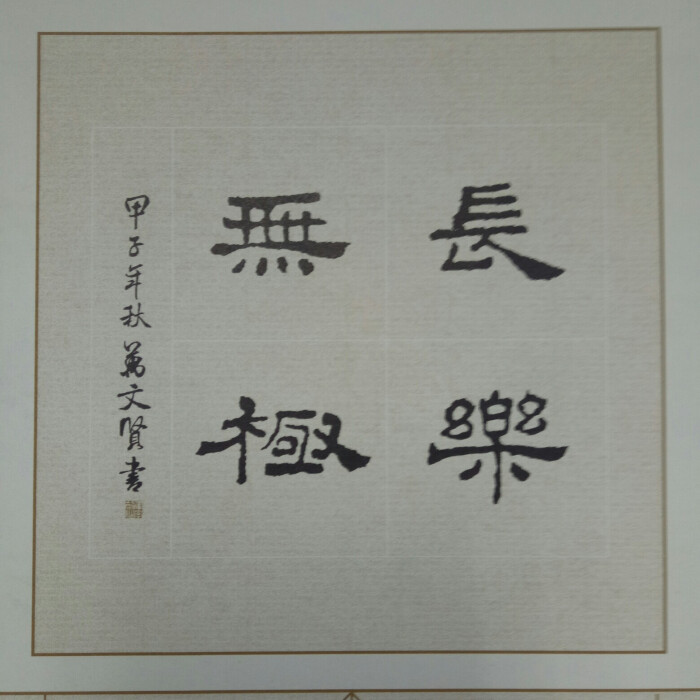 長樂
無極
甲子年秋萬文賢書